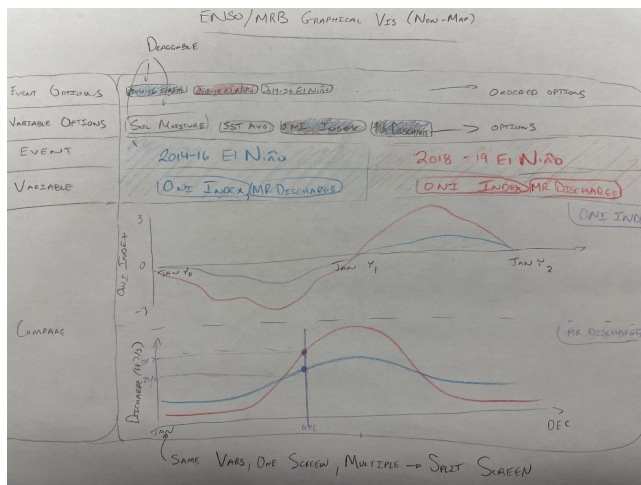 ENSO/MRB GRAPHICAL VIS (NON-MAP)
DRAGGABLE
EVENT OPTIONS 2014-16 El Niño 2018-19 El Niño 2019-20 El Niño → ORDERED OPTIONS
VARIABLE OPTIONS SOIL MOISTURE SST AVG ONI INDEX MR DISCHARGE → OPTIONS
EVENT 2014-16 El Niño 2018-19 El Niño
VARIABLE ONI INDEX MR DISCHARGE ONI INDEX MR DISCHARGE
ONI INDEX
3
ONI INDEX
0
JAN Y0 JAN Y1 JAN Y2
-3
COMPARE
MR DISCHARGE
DISCHARGE
JAN DEC
SAME VARS, ONE SCREEN, MULTIPLE → SPLIT SCREEN